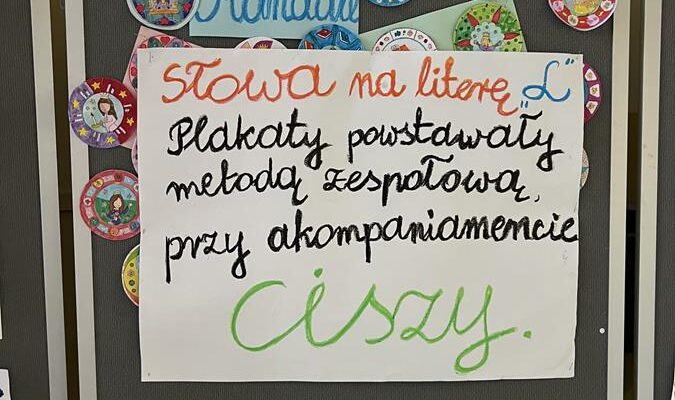 Słowa na literę „L”
Plakaty powstawały
metodą zespołową,
przy akompaniamencie
ciszy.